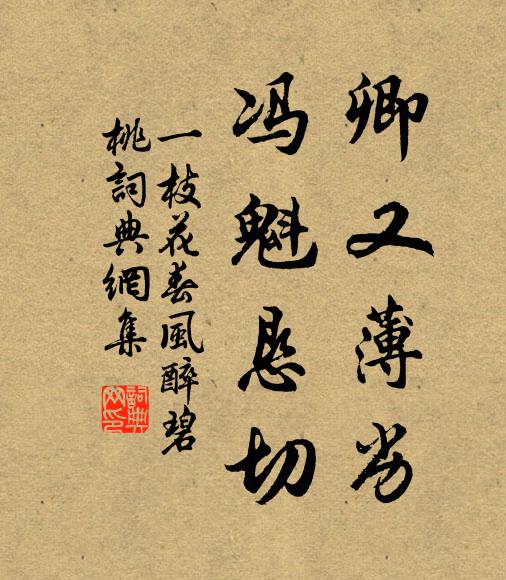 卿又薄劣
冯魁恳切
一枝花春風醉碧
桃詞典網集
詞典
网印